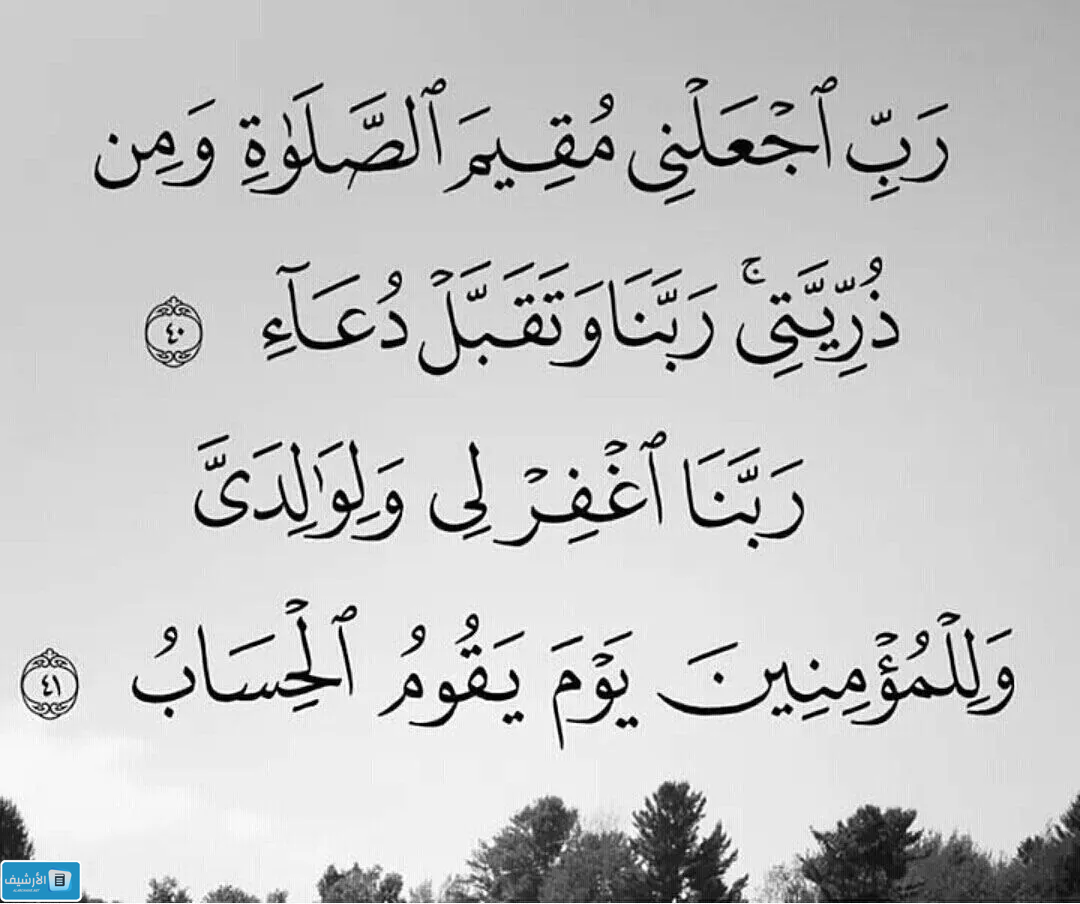 رَبِّ ٱجۡعَلۡنِي مُقِيمَ ٱلصَّلَوٰةِ وَمِن
ذُرِّيَّتِيۚ رَبَّنَا وَتَقَبَّلۡ دُعَآءِ ٤٠
رَبَّنَا ٱغۡفِرۡ لِي وَلِوَٰلِدَيَّ
وَلِلۡمُؤۡمِنِينَ يَوۡمَ يَقُومُ ٱلۡحِسَابُ ٤١
الأرشيف